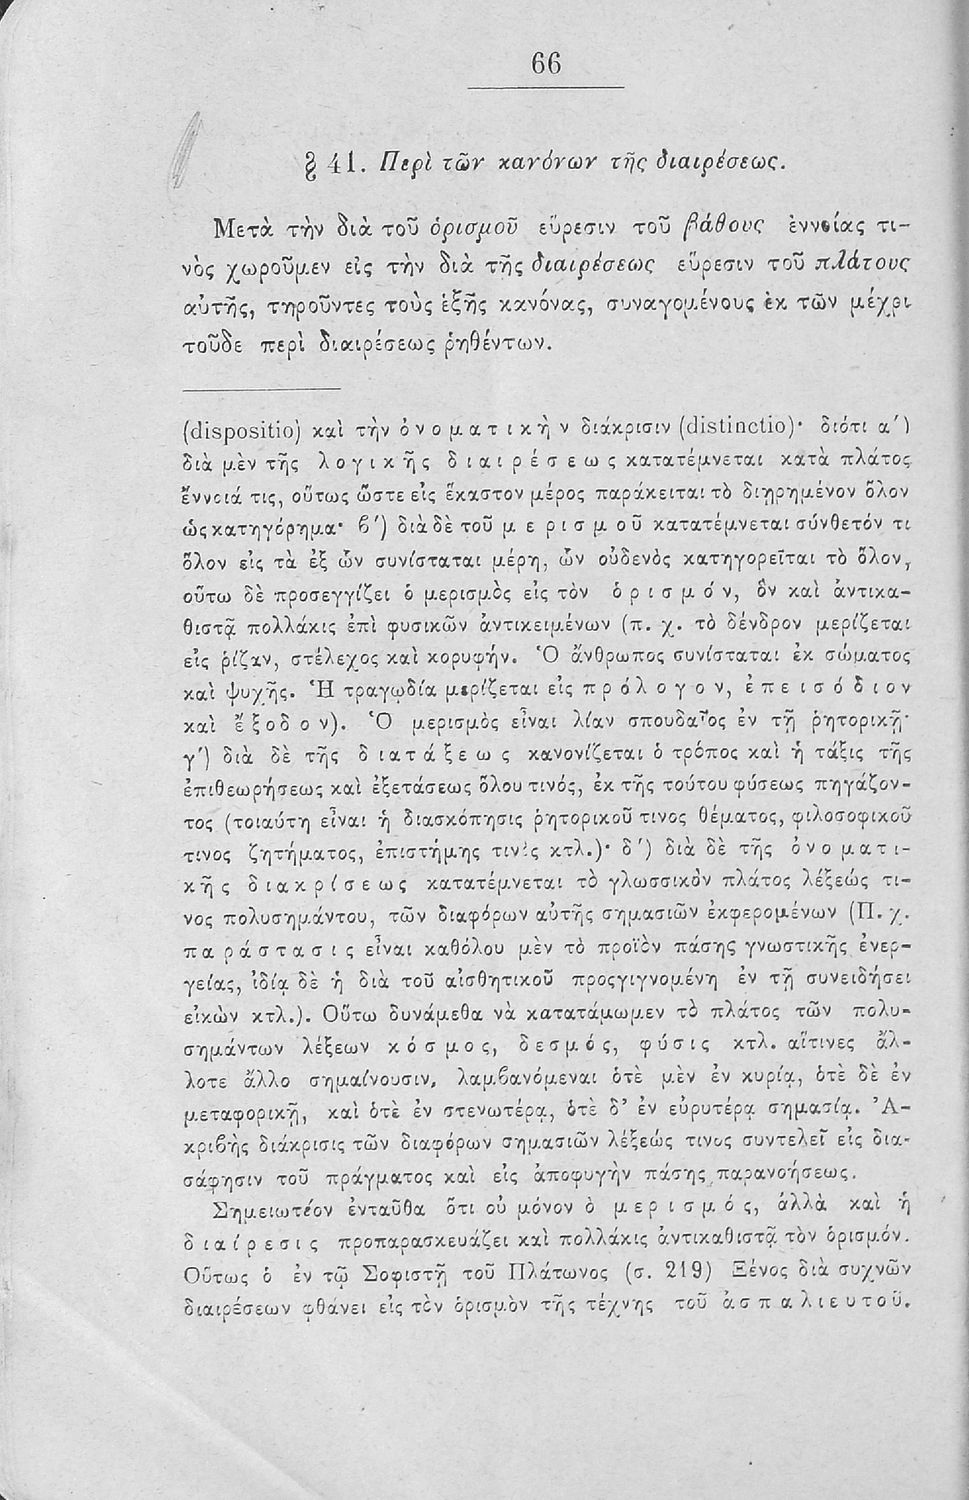 66
§ 41. Περὶ τῶν κανόνων τῆς διαιρέσεως.
Μετὰ τὴν διὰ τοῦ ὁρισμοῦ εὕρεσιν τοῦ βάθους ἐννοίας τι-
νὸς χωροῦμεν εἰς τὴν διὰ τῆς διαιρέσεως εὕρεσιν τοῦ πλάτους
αὐτῆς, τηροῦντες τοὺς ἑξῆς κανόνας, συναγομένους ἐκ τῶν μέχρι
τοῦδε περὶ διαιρέσεως ῥηθέντων.
(dispositio) καὶ τὴν ὀνοματικὴν διάκρισιν (distinctio)· διότι α΄)
διὰ μὲν τῆς λογικῆς διαιρέσεως κατατέμνεται κατὰ πλάτος
ἔννοιά τις, οὕτως ὥστε εἰς ἕκαστον μέρος παράκειται τὸ διῃρημένον ὅλον
ὡς κατηγόρημα· β΄) διὰ δὲ τοῦ μερισμοῦ κατατέμνεται σύνθετόν τι
ὅλον εἰς τὰ ἐξ ὧν συνίσταται μέρη, ὧν οὐδενὸς κατηγορεῖται τὸ ὅλον,
οὕτω δὲ προσεγγίζει ὁ μερισμὸς εἰς τὸν ὁρισμόν, ὃν καὶ ἀντικα-
θιστᾷ πολλάκις ἐπὶ φυσικῶν ἀντικειμένων (π. χ. τὸ δένδρον μερίζεται
εἰς ῥίζαν, στέλεχος καὶ κορυφήν. Ὁ ἄνθρωπος συνίσταται ἐκ σώματος
καὶ ψυχῆς. Ἡ τραγῳδία μερίζεται εἰς πρόλογον, ἐπεισόδιον
καὶ ἔξοδον). Ὁ μερισμὸς εἶναι λίαν σπουδαῖος ἐν τῇ ῥητορικῇ·
γ΄) διὰ δὲ τῆς διατάξεως κανονίζεται ὁ τρόπος καὶ ἡ τάξις τῆς
ἐπιθεωρήσεως καὶ ἐξετάσεως ὅλου τινός, ἐκ τῆς τούτου φύσεως πηγάζον-
τος (τοιαύτη εἶναι ἡ διασκόπησις ῥητορικοῦ τινος θέματος, φιλοσοφικοῦ
τινος ζητήματος, ἐπιστήμης τινὸς κτλ.)· δ΄) διὰ δὲ τῆς ὀνοματι-
κῆς διακρίσεως κατατέμνεται τὸ γλωσσικὸν πλάτος λέξεώς τι-
νος πολυσημάντου, τῶν διαφόρων αὐτῆς σημασιῶν ἐκφερομένων (Π. χ.
παράστασις εἶναι καθόλου μὲν τὸ προϊὸν πάσης γνωστικῆς ἐνερ-
γείας, ἰδίᾳ δὲ ἡ διὰ τοῦ αἰσθητικοῦ προςγιγνομένη ἐν τῇ συνειδήσει
εἰκὼν κτλ.). Οὕτω δυνάμεθα νὰ κατατάμωμεν τὸ πλάτος τῶν πολυ-
σημάντων λέξεων κόσμος, δεσμός, φύσις κτλ. αἵτινες ἄλ-
λοτε ἄλλο σημαίνουσιν, λαμβανόμεναι ὁτὲ μὲν ἐν κυρίᾳ, ὁτὲ δὲ ἐν
μεταφορικῇ, καὶ ὁτὲ ἐν στενωτέρᾳ, ὁτὲ δ' ἐν εὐρυτέρᾳ σημασίᾳ. Ἀ-
κριβὴς διάκρισις τῶν διαφόρων σημασιῶν λέξεώς τινος συντελεῖ εἰς δια-
σάφησιν τοῦ πράγματος καὶ εἰς ἀποφυγὴν πάσης παρανοήσεως.
Σημειωτέον ἐνταῦθα ὅτι οὐ μόνον ὁ μερισμός, ἀλλὰ καὶ ἡ
διαίρεσις προπαρασκευάζει καὶ πολλάκις ἀντικαθιστᾷ τὸν ὁρισμόν.
Οὕτως ὁ ἐν τῷ Σοφιστῇ τοῦ Πλάτωνος (σ. 219) Ξένος διὰ συχνῶν
διαιρέσεων φθάνει εἰς τὸν ὁρισμὸν τῆς τέχνης τοῦ ἀσπαλιευτοῦ.